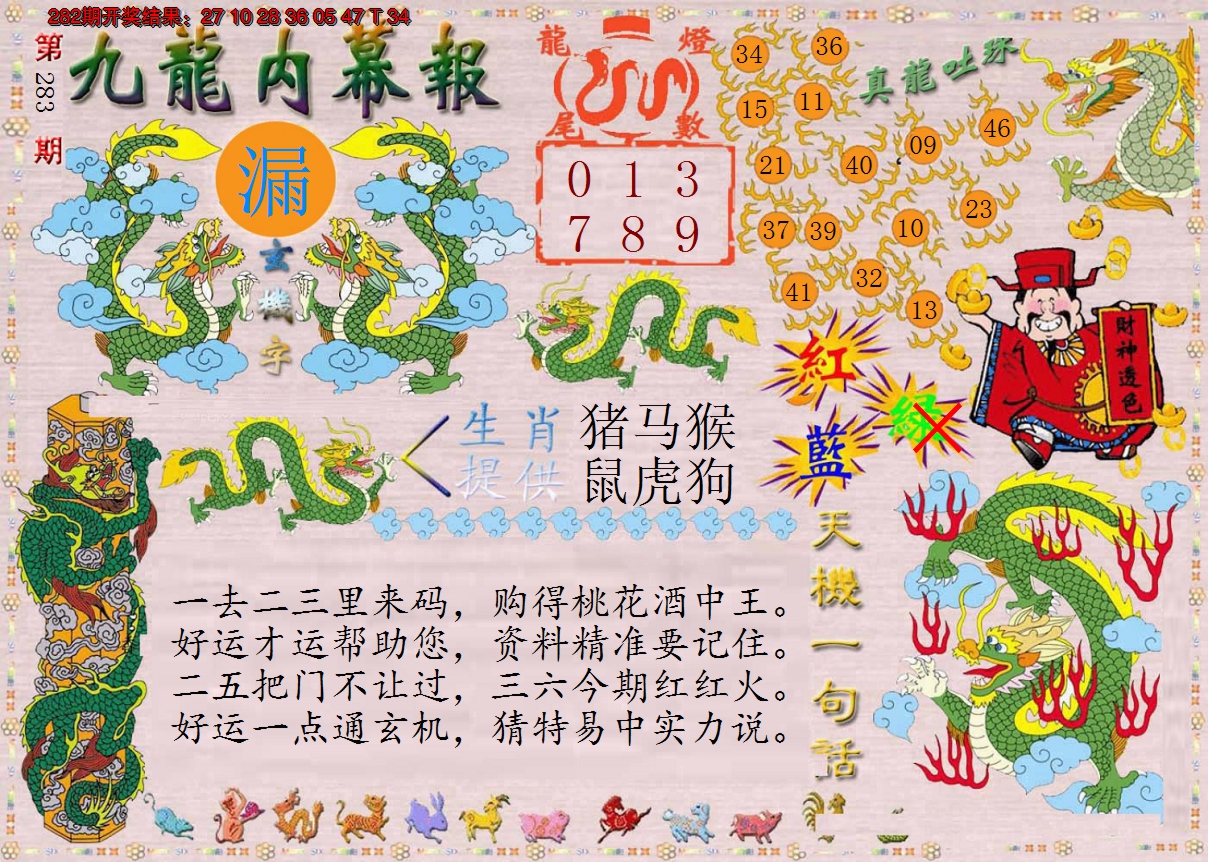 282期开奖结果：27 10 28 36 05 47 T 34
第283期
九龍内幕報
漏
玄機字
龍燈
尾數
0 1 3
7 8 9
真龍吐珠
34 36
15 11
21 40 09 46
37 39 10 23
41 32 13
財神透色
紅
綠
藍
生肖 猪马猴
提供 鼠虎狗
天機一句话
一去二三里来码，购得桃花酒中王。
好运才运帮助您，资料精准要记住。
二五把门不让过，三六今期红红火。
好运一点通玄机，猜特易中实力说。